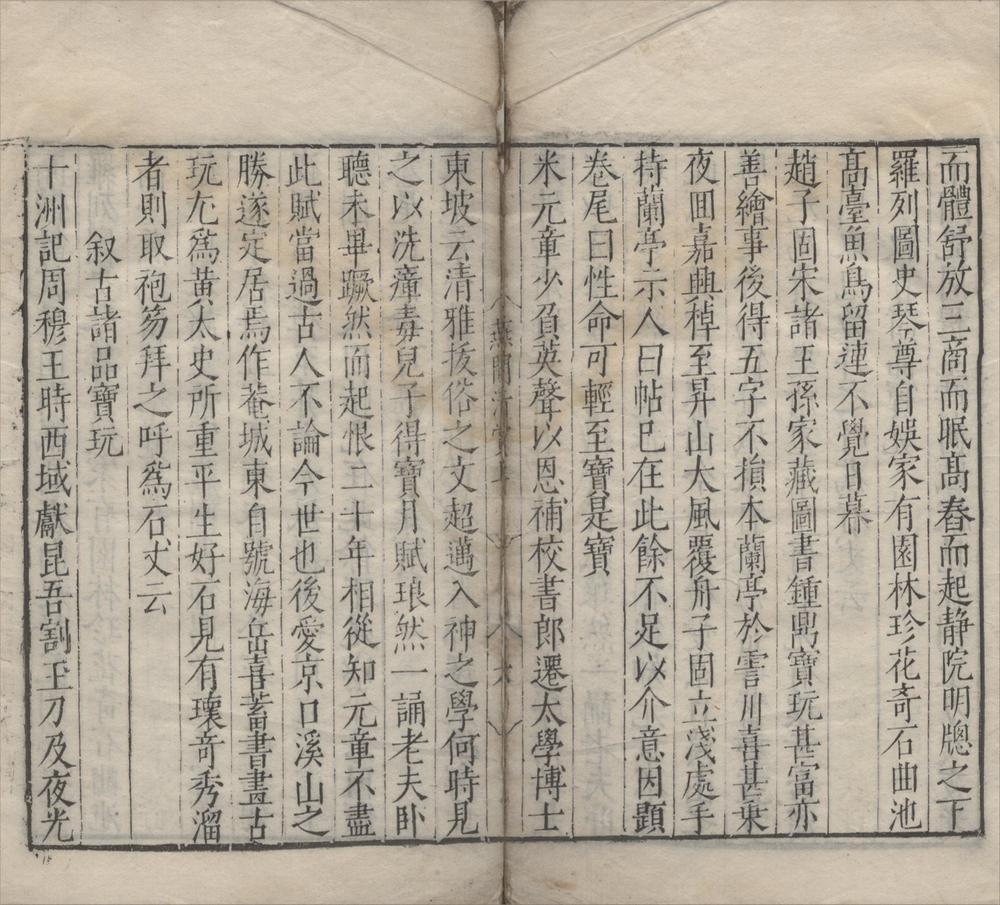 而體舒放三商而眠高舂而起静院明牕之下
羅列圖史琴尊自娛家有園林珍花奇石曲池
高臺魚鳥留連不覺日暮
趙子固宋諸王孫家藏圖書鍾鼎寶玩甚富亦
善繪事後得五字不損本蘭亭於霅川喜甚乗
夜囬嘉興棹至昇山大風覆舟子固立淺處手
持蘭亭示人曰帖巳在此餘不足以介意因題
卷尾曰性命可輕至寶是寶
米元章少負英聲以恩補校書郎遷太學博士
燕閒清賞
六
東坡云清雅拔俗之文超邁入神之學何時見
之以洗瘴毒兒子得寶月賦琅然一誦老夫卧
聽未畢蹶然而起恨二十年相從知元章不盡
此賦當過古人不論今世也後愛京口溪山之
勝遂定居焉作菴城東自號海岳喜蓄書畫古
玩尢爲黄太史所重平生好石見有瓌奇秀溜
者則取袍笏拜之呼爲石丈云
叙古諸品寶玩
十洲記周穆王時西域獻昆吾割玉刀及夜光